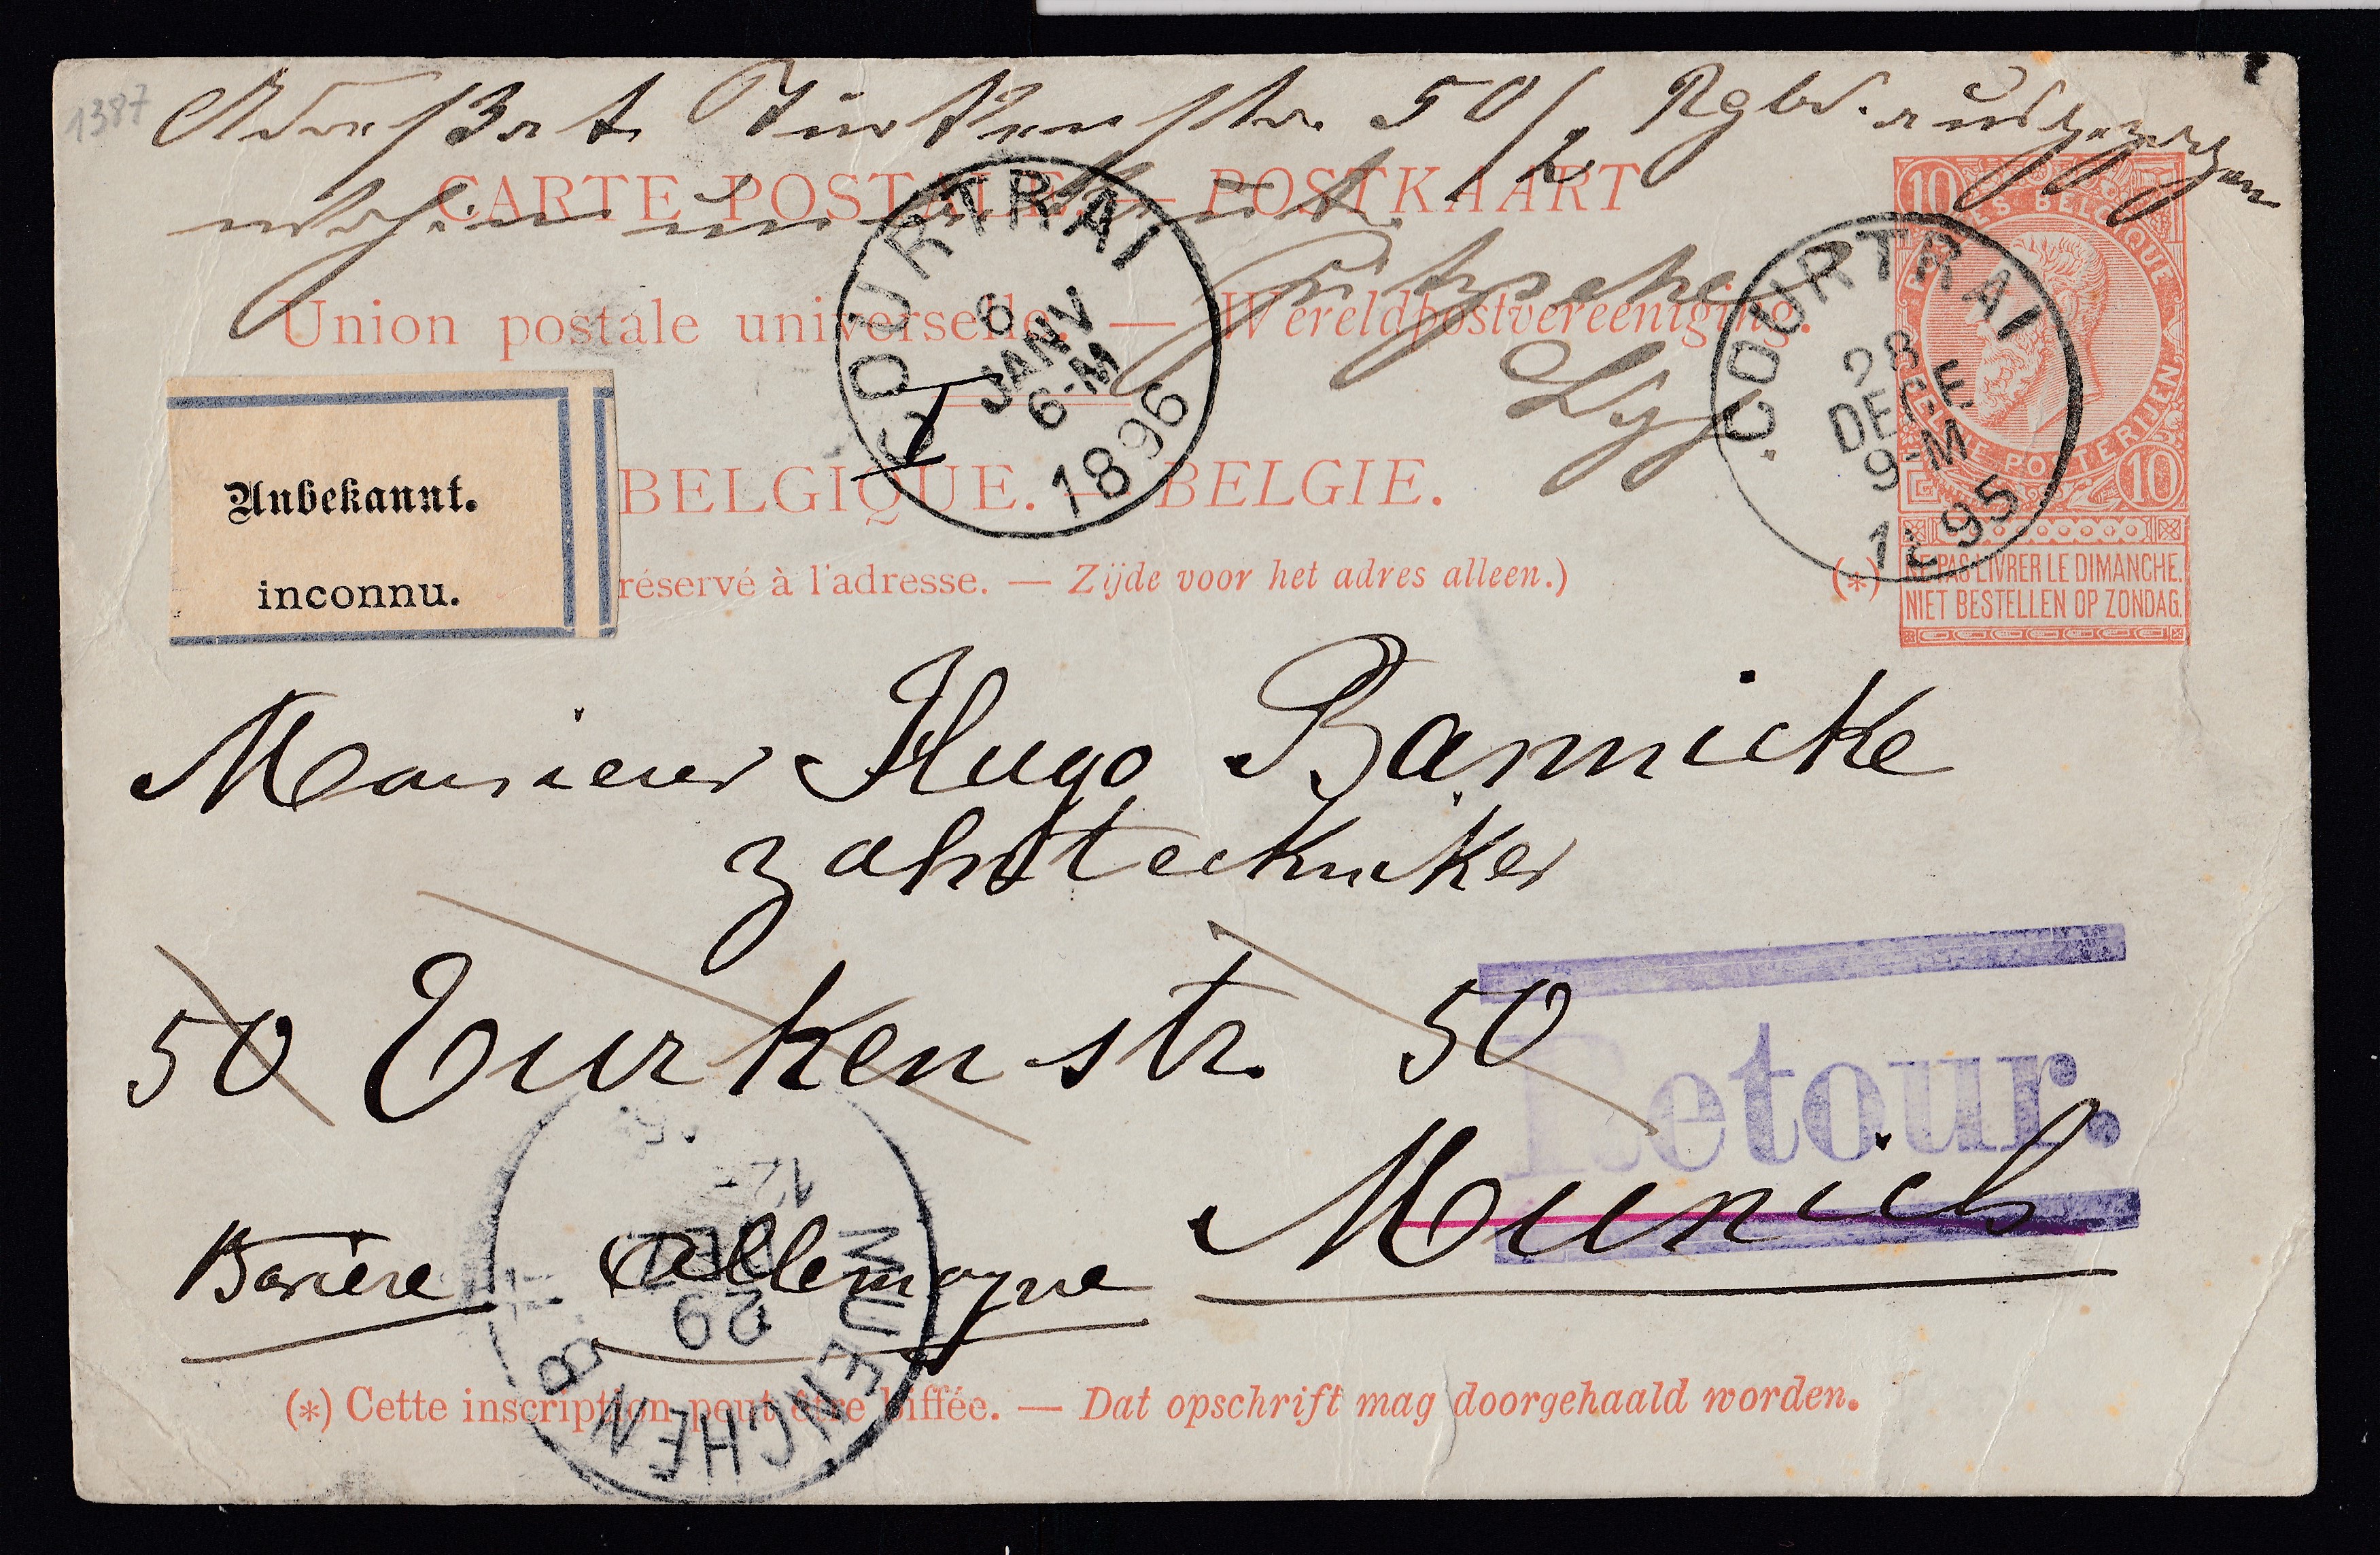 1387
Adressat Türkenstr. 50/2 Rgbd. ausgezogen
wohin unbekannt.
CARTE POSTALE. — POSTKAART
Union postale universelle. — Wereldpostvereeniging.
BELGIQUE. — BELGIE.
réservé à l'adresse. — Zijde voor het adres alleen.)
(*)
10 POSTES BELGIQUE
BELGIE POSTERIJEN 10
NE PAS LIVRER LE DIMANCHE.
NIET BESTELLEN OP ZONDAG.
COURTRAI
6
JANV
6-M
1896
COURTRAI
28
DECE
9-M
1895
Unbekannt.
inconnu.
Monsieur Hugo Bannicke
Zahntechniker
50 Turkenstr. 50
Retour.
Munich
Bavière Allemagne
MUENCHEN
29
DEZ
12-
(*) Cette inscription peut être biffée. — Dat opschrift mag doorgehaald worden.